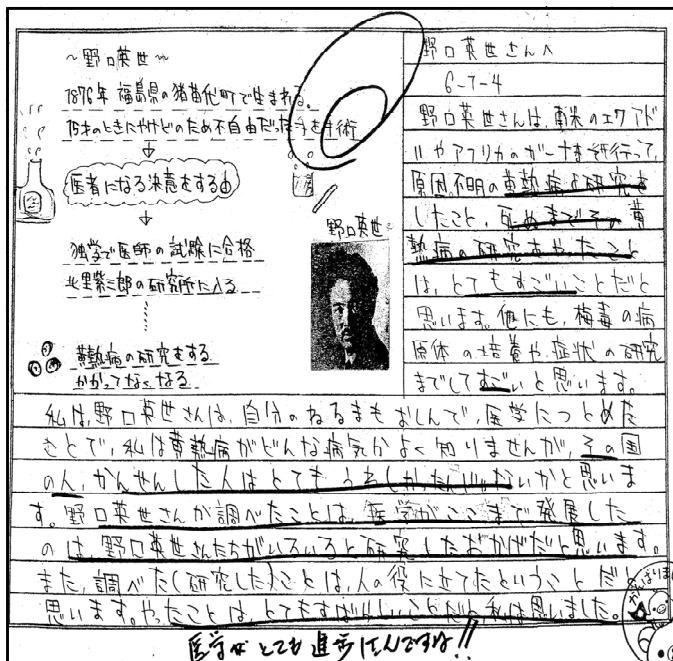 ～野口英世～
1876年 福島県の猪苗代町で生まれる。
15才のときにやけどのため不自由だった手を手術
医者になる決意をする
独学で医師の試験に合格
北里柴三郎の研究所に入る
黄熱病の研究をする
かかってなくなる
野口英世
野口英世さんへ
6-7-4
野口英世さんは、南米のエクアド
ルやアフリカのガーナまで行って、
原因不明の黄熱病を研究を
したこと、死ぬまでその黄
熱病の研究をやったこと
は、とてもすごいことだと
思います。他にも、梅毒の病
原体の培養や、症状の研究
までしてすごいと思います。
私は、野口英世さんは、自分のねるまもおしんで、医学につとめた
きとで、私は黄熱病がどんな病気かよく知りませんが、その国
の人、かんせんした人はとてもうれしかったんじゃないかと思いま
す。野口英世さんが調べたことは、医学がここまで発展した
のは、野口英世さんたちがいろいろと研究したおかげだと思います。
また、調べた(研究した)ことは、人の役に立てたということだと
思います。やったことは、とてもすばらしいことだと私は思いました。
医学がとても進歩したんですね!!